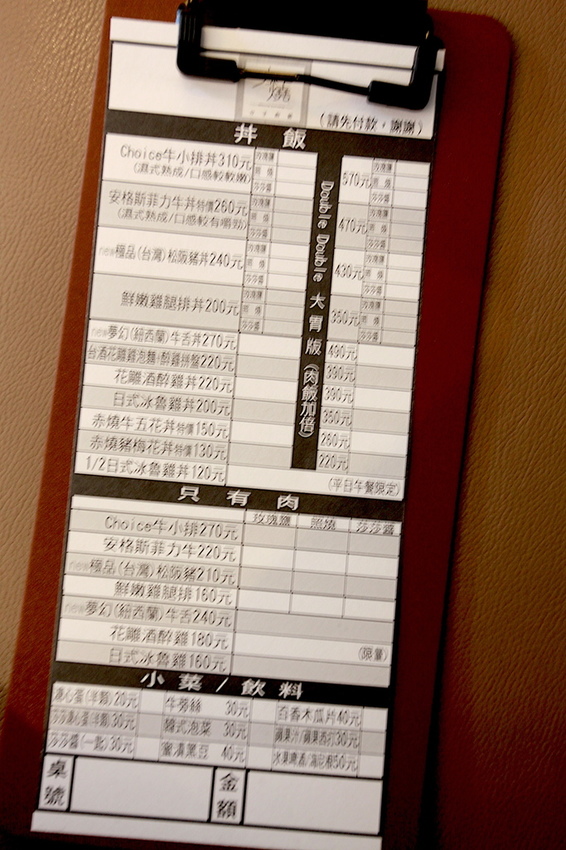 燒
(請先付款，謝謝)
丼飯
Choice牛小排丼310元 玫瑰鹽 照燒 莎莎醬 570元 玫瑰鹽 照燒 莎莎醬
(濕式熟成/口感較軟嫩)
安格斯菲力牛丼特價260元 玫瑰鹽 照燒 莎莎醬 470元 玫瑰鹽 照燒 莎莎醬
(濕式熟成/口感較有嚼勁)
new極品(台灣)松阪豬丼240元 玫瑰鹽 照燒 莎莎醬 430元 玫瑰鹽 照燒 莎莎醬
鮮嫩雞腿排丼200元 玫瑰鹽 照燒 莎莎醬 350元 玫瑰鹽 照燒 莎莎醬
new夢幻(紐西蘭)牛舌丼270元 490元
台酒花雕雞泡麵+醉雞拼盤220元 390元
花雕酒醉雞丼220元 390元
日式冰魯雞丼200元 350元
赤燒牛五花丼特價150元 260元
赤燒豬梅花丼特價130元 220元
1/2日式冰魯雞丼120元 (平日午餐限定)
Double Double 大胃版 (肉飯加倍)
只有肉
玫瑰鹽 照燒 莎莎醬
Choice牛小排270元
安格斯菲力牛220元
new極品(台灣)松阪豬210元
鮮嫩雞腿排160元
new夢幻(紐西蘭)牛舌240元
花雕酒醉雞180元
日式冰魯雞160元 (限量)
小菜/飲料
溏心蛋(半顆)20元 牛蒡絲 30元 百香木瓜片40元
莎莎溏心蛋(半顆)30元 韓式泡菜 30元 蘋果汁/蘋果西打30元
莎莎醬(一匙)30元 蜜漬黑豆 40元 水果啤酒/海尼根50元
桌號 金額